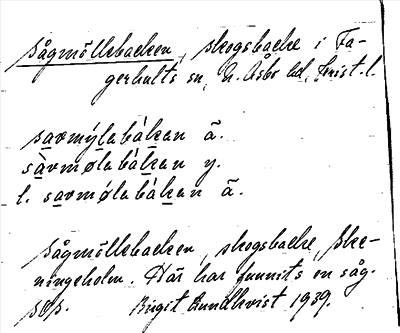 Sågmöllebacken, skogsbacke i Fa-
gerhults sn, N. Åsbo hd, Krist. l.
savmýlabákan ä.
sàvmølabákan y.
l. savmølabákan ä.
Sågmöllebacken, skogsbacke, Ske-
ningeholm. Här har funnits en såg.
Birgit Bundhvist 1939.